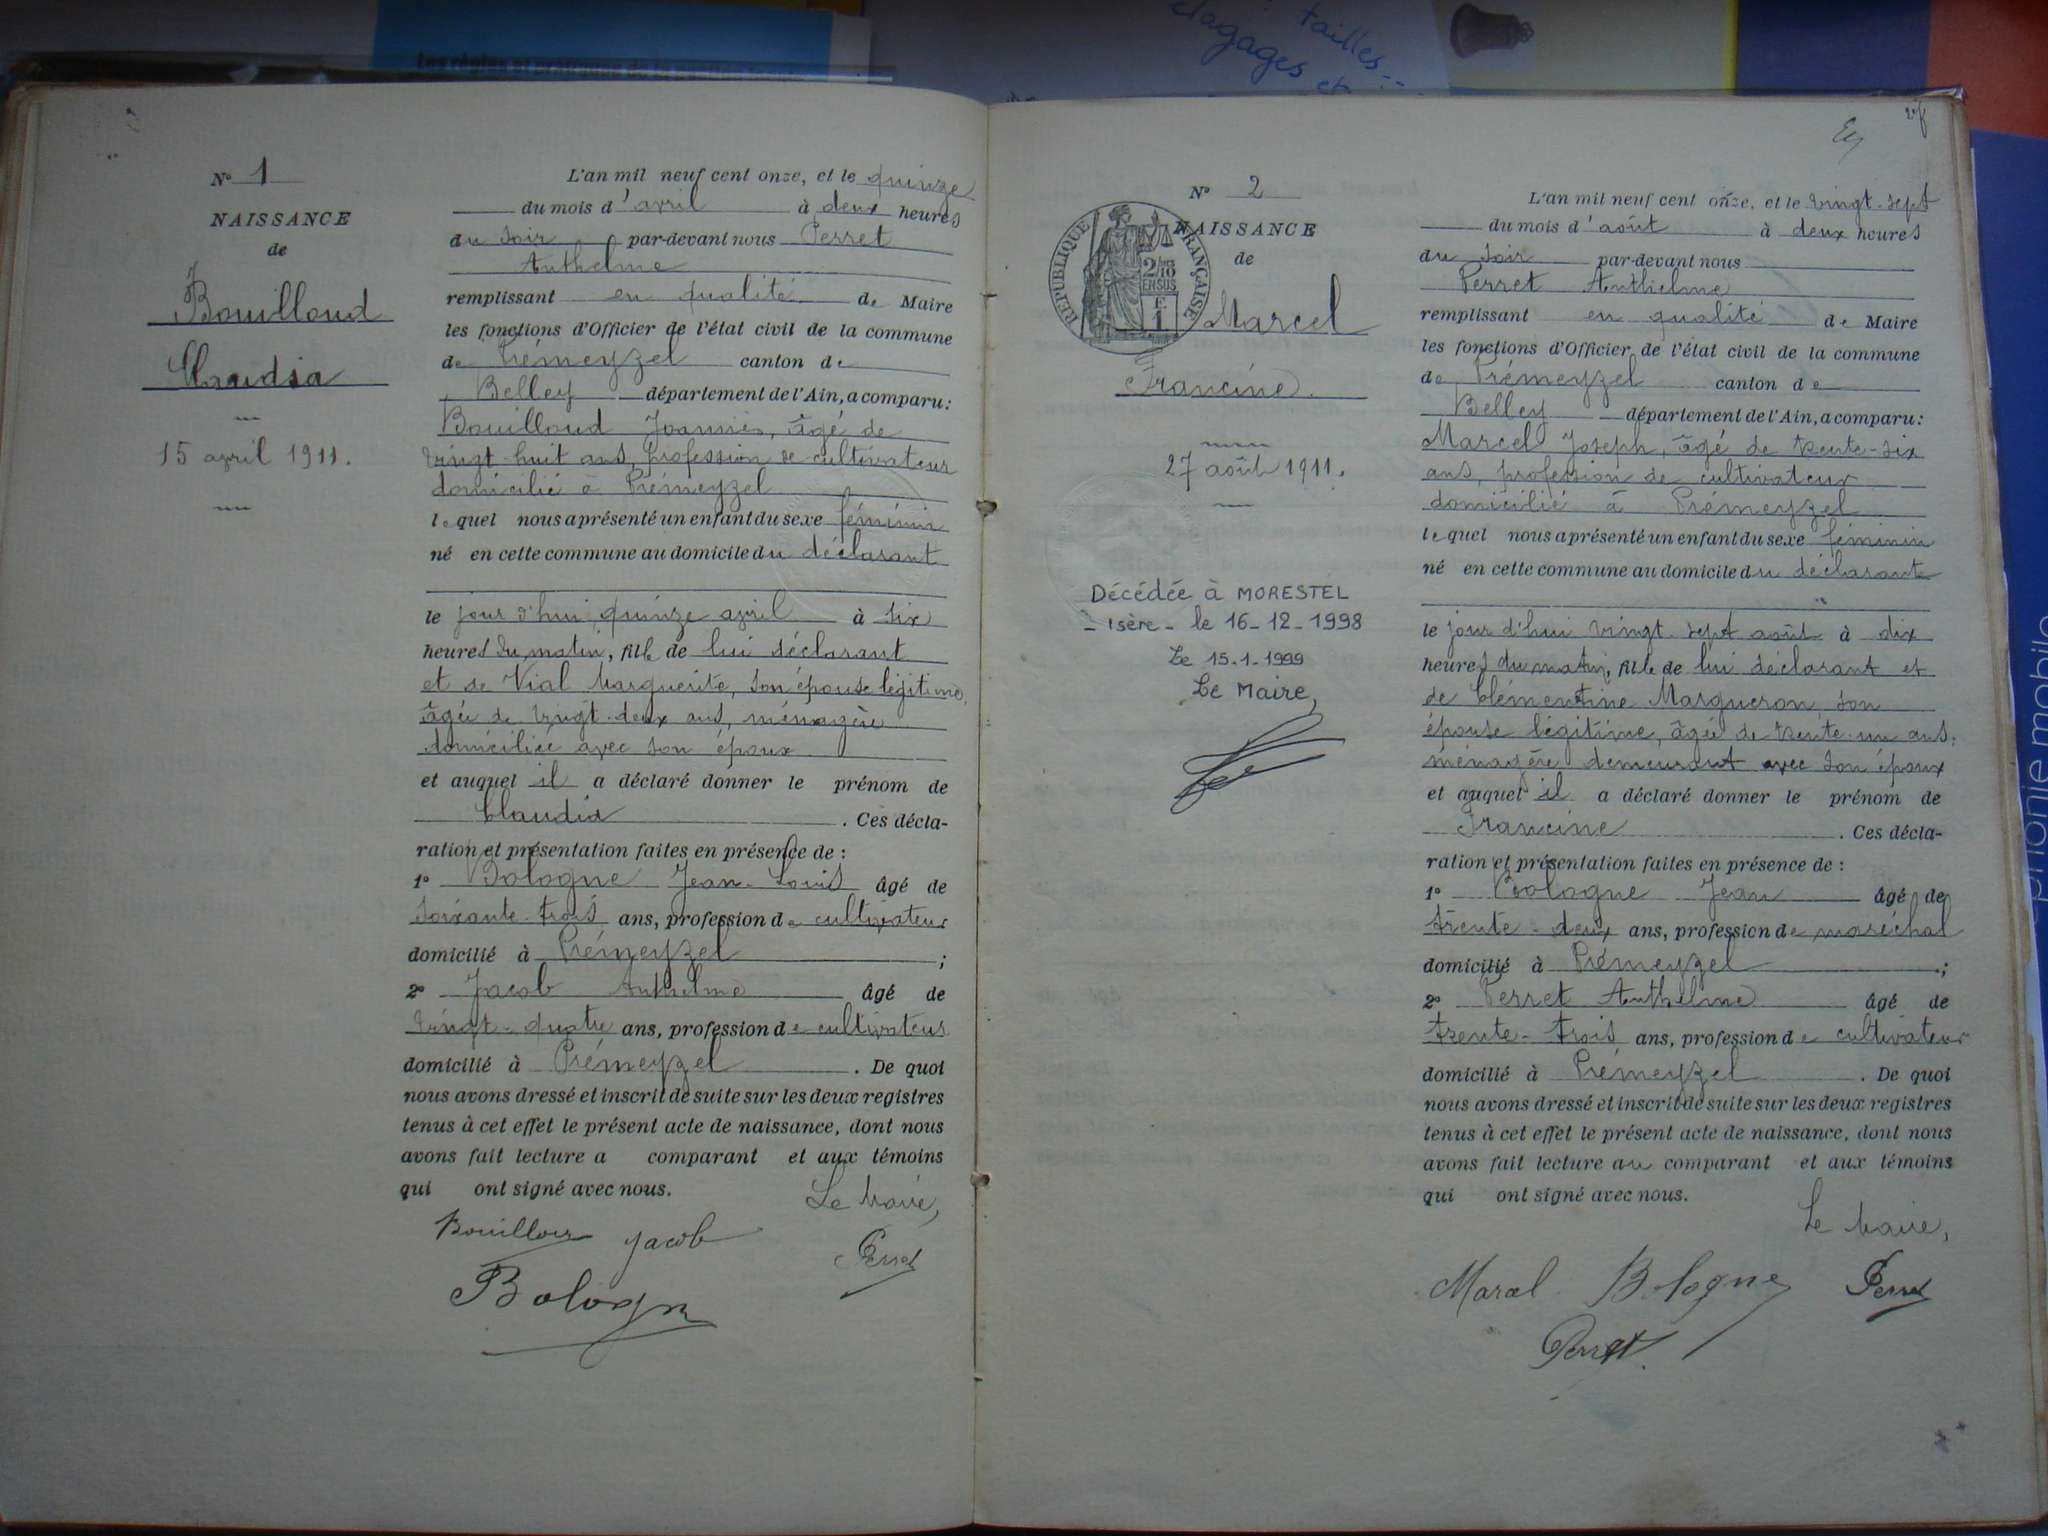 Les règles et pratiques de la
tailles...
élagages et
N° 1
NAISSANCE
de
Bouilloud
Claudia
15 avril 1911.
L'an mil neuf cent onze, et le quinze
du mois d'avril à deux heures
du soir par-devant nous Perret
Anthelme
remplissant en qualité de Maire
les fonctions d'Officier de l'état civil de la commune
de Prémeyzel canton de
Belley département de l'Ain, a comparu:
Bouilloud Joannès, âgé de
vingt-huit ans, profession de cultivateur
domicilié à Prémeyzel
lequel nous a présenté un enfant du sexe féminin
né en cette commune au domicile du déclarant
le jour d'hui quinze avril à six
heures du matin, fille de lui déclarant
et de Vial Marguerite, son épouse légitime,
âgée de vingt-deux ans, ménagère
domiciliée avec son époux
et auquel il a déclaré donner le prénom de
Claudia. Ces décla-
ration et présentation faites en présence de :
1° Bologne Jean-Louis âgé de
soixante-trois ans, profession de cultivateur
domicilié à Prémeyzel ;
2° Jacob Anthelme âgé de
vingt-quatre ans, profession de cultivateur
domicilié à Prémeyzel. De quoi
nous avons dressé et inscrit de suite sur les deux registres
tenus à cet effet le présent acte de naissance, dont nous
avons fait lecture a comparant et aux témoins
qui ont signé avec nous.
Le Maire,
Bouilloud Jacob Perret
Bologne
27
N° 2
NAISSANCE
de
RÉPUBLIQUE FRANÇAISE
2/10
EN SUS
F.
1
Marcel
Francine.
27 août 1911.
Décédée à MORESTEL
- Isère - le 16-12-1998
Le 15-1-1999
Le Maire,
L'an mil neuf cent onze, et le vingt-sept
du mois d'août à deux heures
du soir par-devant nous
Perret Anthelme
remplissant en qualité de Maire
les fonctions d'Officier de l'état civil de la commune
de Prémeyzel canton de
Belley département de l'Ain, a comparu:
Marcel Joseph, âgé de trente-six
ans, profession de cultivateur
domicilié à Prémeyzel
lequel nous a présenté un enfant du sexe féminin
né en cette commune au domicile du déclarant
le jour d'hui vingt-sept août à dix
heures du matin, fille de lui déclarant et
de Clémentine Margueron son
épouse légitime, âgée de trente-un ans,
ménagère demeurant avec son époux
et auquel il a déclaré donner le prénom de
Francine. Ces décla-
ration et présentation faites en présence de :
1° Bologne Jean âgé de
trente-deux ans, profession de maréchal
domicilié à Prémeyzel ;
2° Perret Anthelme âgé de
trente-trois ans, profession de cultivateur
domicilié à Prémeyzel. De quoi
nous avons dressé et inscrit de suite sur les deux registres
tenus à cet effet le présent acte de naissance, dont nous
avons fait lecture au comparant et aux témoins
qui ont signé avec nous.
Le Maire,
Marcel Bologne Perret
Perret
phonie mobile